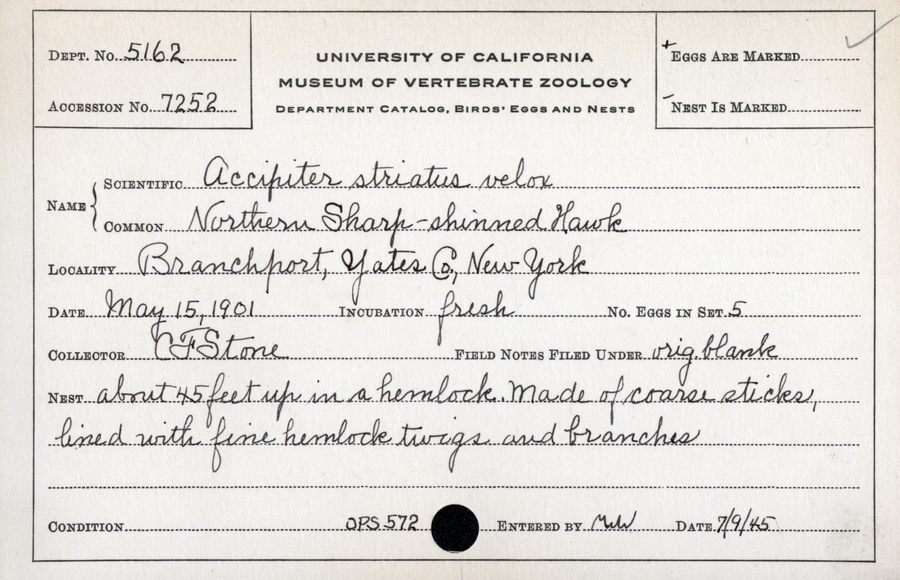 Dept. No. 5162
Accession No. 7252
UNIVERSITY OF CALIFORNIA
MUSEUM OF VERTEBRATE ZOOLOGY
Department Catalog, Birds' Eggs and Nests
+ Eggs Are Marked
- Nest Is Marked
Name { Scientific Accipiter striatus velox
Common Northern Sharp-shinned Hawk
Locality Branchport, Yates Co., New York
Date May 15, 1901 Incubation fresh No. Eggs in Set 5
Collector CFStone Field Notes Filed Under orig. blank
Nest about 45 feet up in a hemlock. Made of coarse sticks,
lined with fine hemlock twigs and branches
Condition OPS 572 Entered by Date 7/9/45